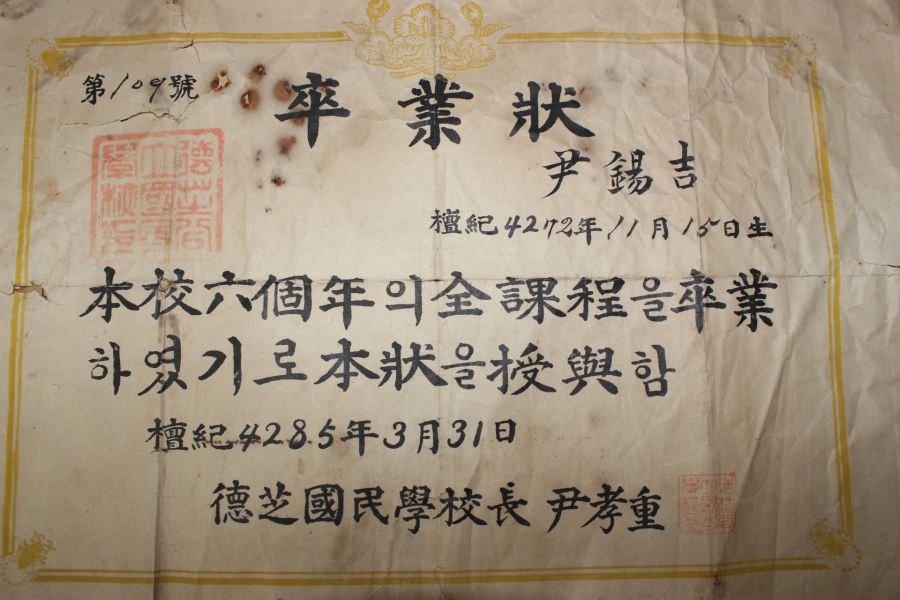 第109號
卒業狀
尹錫吉
檀紀4272年11月15日生
本校六個年의全課程을卒業
하였기로本狀을授與함
檀紀4285年3月31日
德芝國民學校長 尹孝重